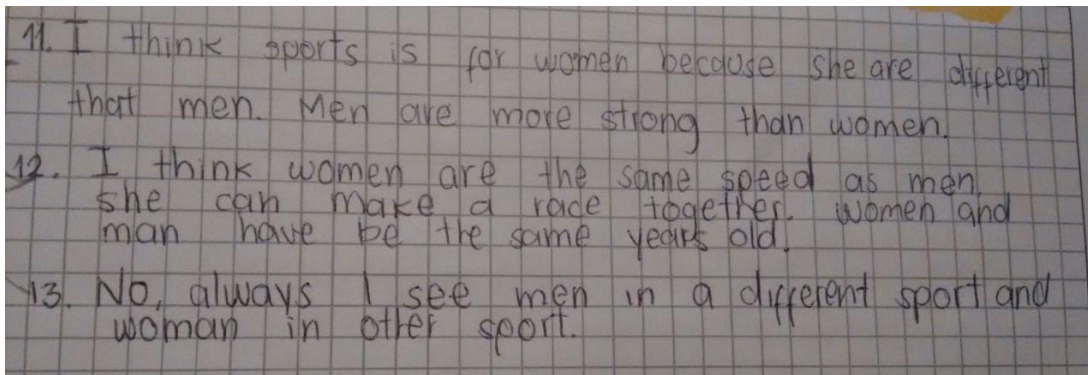 11. I think sports is for women because she are different
that men. Men are more strong than women.
12. I think women are the same speed as men,
she can make a race together. Women and
man have be the same years old.
13. No, always I see men in a different sport and
woman in other sport.